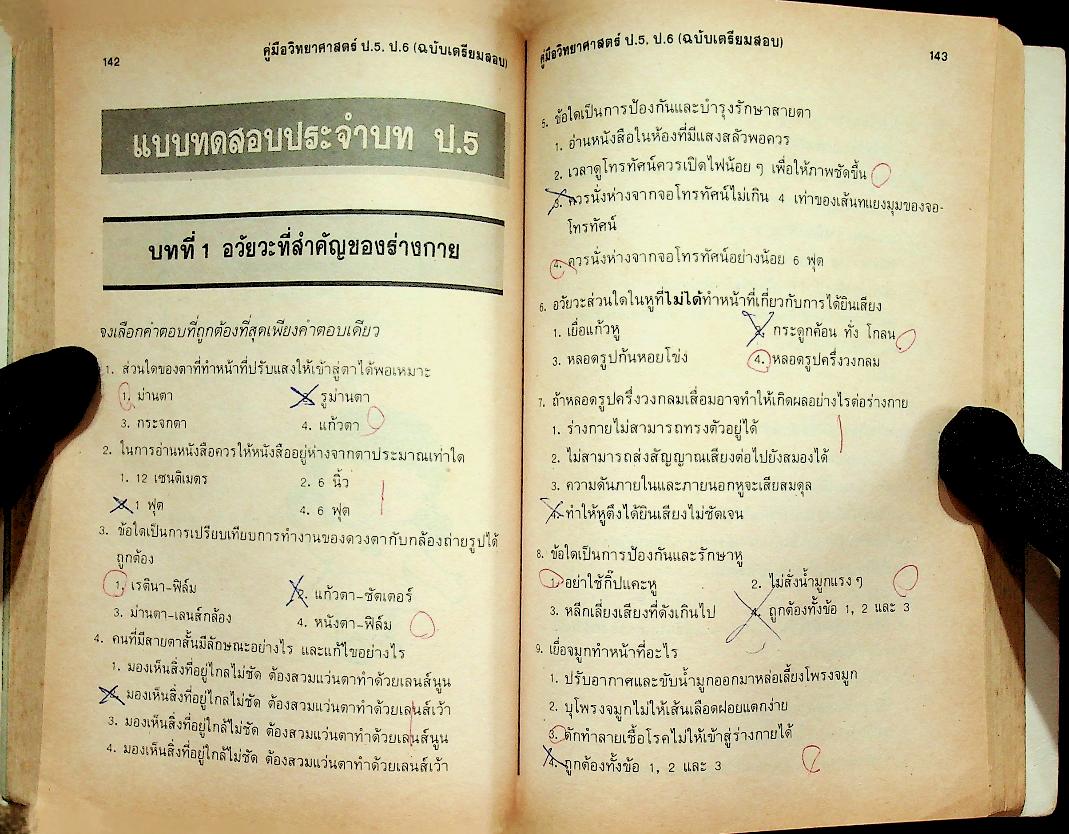 142
คู่มือวิทยาศาสตร์ ป.5, ป.6 (ฉบับเตรียมสอบ)
แบบทดสอบประจำบท ป.5
บทที่ 1 อวัยวะที่สำคัญของร่างกาย
จงเลือกคำตอบที่ถูกต้องที่สุดเพียงคำตอบเดียว
1. ส่วนใดของตาที่ทำหน้าที่ปรับแสงให้เข้าสู่ตาได้พอเหมาะ
1. ม่านตา 2. รูม่านตา
3. กระจกตา 4. แก้วตา
2. ในการอ่านหนังสือควรให้หนังสืออยู่ห่างจากตาประมาณเท่าใด
1. 12 เซนติเมตร 2. 6 นิ้ว
3. 1 ฟุต 4. 6 ฟุต
3. ข้อใดเป็นการเปรียบเทียบการทำงานของดวงตากับกล้องถ่ายรูปได้
ถูกต้อง
1. เรตินา-ฟิล์ม 2. แก้วตา-ชัตเตอร์
3. ม่านตา-เลนส์กล้อง 4. หนังตา-ฟิล์ม
4. คนที่มีสายตาสั้นมีลักษณะอย่างไร และแก้ไขอย่างไร
1. มองเห็นสิ่งที่อยู่ไกลไม่ชัด ต้องสวมแว่นตาทำด้วยเลนส์นูน
2. มองเห็นสิ่งที่อยู่ไกลไม่ชัด ต้องสวมแว่นตาทำด้วยเลนส์เว้า
3. มองเห็นสิ่งที่อยู่ใกล้ไม่ชัด ต้องสวมแว่นตาทำด้วยเลนส์นูน
4. มองเห็นสิ่งที่อยู่ใกล้ไม่ชัด ต้องสวมแว่นตาทำด้วยเลนส์เว้า
คู่มือวิทยาศาสตร์ ป.5, ป.6 (ฉบับเตรียมสอบ)
143
5. ข้อใดเป็นการป้องกันและบำรุงรักษาสายตา
1. อ่านหนังสือในห้องที่มีแสงสลัวพอควร
2. เวลาดูโทรทัศน์ควรเปิดไฟน้อย ๆ เพื่อให้ภาพชัดขึ้น
3. ควรนั่งห่างจากจอโทรทัศน์ไม่เกิน 4 เท่าของเส้นทแยงมุมของจอ-
โทรทัศน์
4. ควรนั่งห่างจากจอโทรทัศน์อย่างน้อย 6 ฟุต
6. อวัยวะส่วนใดในหูที่ไม่ได้ทำหน้าที่เกี่ยวกับการได้ยินเสียง
1. เยื่อแก้วหู 2. กระดูกค้อน ทั่ง โกลน
3. หลอดรูปก้นหอยโข่ง 4. หลอดรูปครึ่งวงกลม
7. ถ้าหลอดรูปครึ่งวงกลมเสื่อมอาจทำให้เกิดผลอย่างไรต่อร่างกาย
1. ร่างกายไม่สามารถทรงตัวอยู่ได้
2. ไม่สามารถส่งสัญญาณเสียงต่อไปยังสมองได้
3. ความดันภายในและภายนอกหูจะเสียสมดุล
4. ทำให้หูตึงได้ยินเสียงไม่ชัดเจน
8. ข้อใดเป็นการป้องกันและรักษาหู
1. อย่าใช้กิ๊ปแคะหู 2. ไม่สั่งน้ำมูกแรง ๆ
3. หลีกเลี่ยงเสียงที่ดังเกินไป 4. ถูกต้องทั้งข้อ 1, 2 และ 3
9. เยื่อจมูกทำหน้าที่อะไร
1. ปรับอากาศและขับน้ำมูกออกมาหล่อเลี้ยงโพรงจมูก
2. บุโพรงจมูกไม่ให้เส้นเลือดฝอยแตกง่าย
3. ดักทำลายเชื้อโรคไม่ให้เข้าสู่ร่างกายได้
4. ถูกต้องทั้งข้อ 1, 2 และ 3